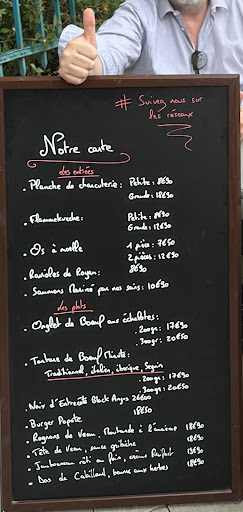 # Suivez nous sur
les réseaux
Notre carte
des entrées
. Planche de charcuterie : Petite : 8€90
Grande : 18€90
. Flammekueche : Petite : 8€90
Grande : 12€90
. Os à moelle 1 pièce : 7€50
2 pièces : 12€90
. Ravioles de Royan : 8€90
. Saumons Mariné par nos soins : 10€90
des plats
. Onglet de Bœuf aux échalotes :
. 200gr : 17€90
. 300gr : 20€50
. Tartare de Bœuf Minute :
Traditionnel, italien, iberique, Saguin
. 200gr : 17€90
. 300gr : 20€50
. Noix d'Entrecôte Black Angus 26€00
. Burger Papote 18€50
. Rognons de Veau, Moutarde à l'ancienne 18€90
. Tête de Veau, sauce gribiche 18€90
. Jambonneau rôti au foin, crème Raifort 19€90
. Dos de Cabillaud, beurre aux herbes 18€90